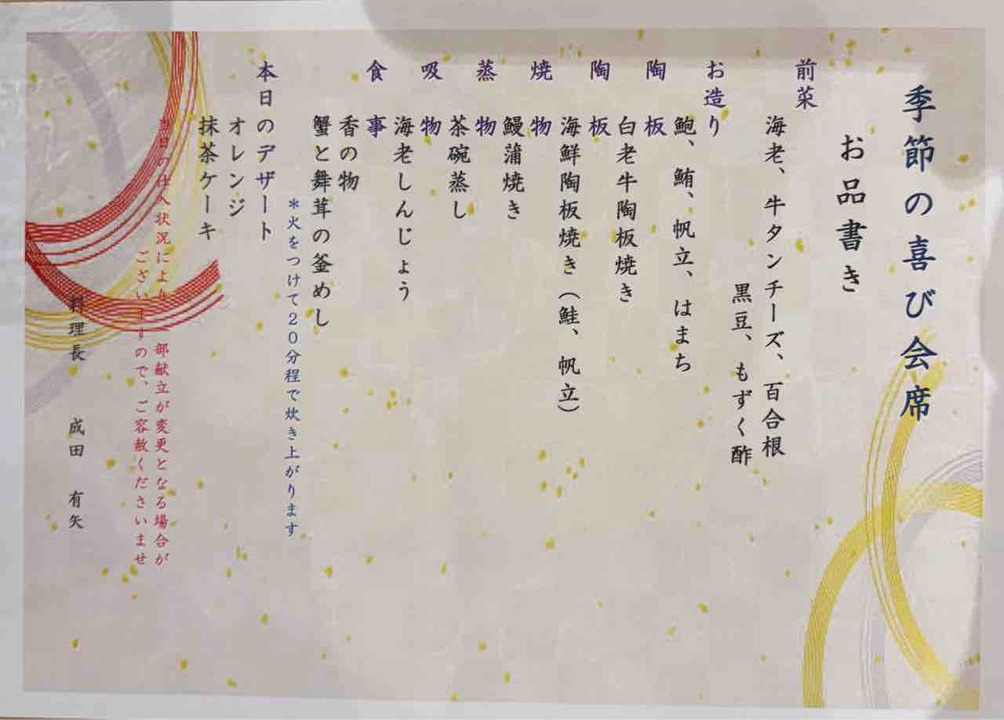 季節の喜び会席
お品書き
前菜
海老、牛タンチーズ、百合根
黒豆、もずく酢
お造り
鮑、鮪、帆立、はまち
陶板
白老牛陶板焼き
陶板
海鮮陶板焼き（鮭、帆立）
焼物
鰻蒲焼き
蒸物
茶碗蒸し
吸物
海老しんじょう
食事
香の物
蟹と舞茸の釜めし
＊火をつけて２０分程で炊き上がります
本日のデザート
オレンジ
抹茶ケーキ
当日の仕入状況により、一部献立が変更となる場合が
ございますので、ご容赦くださいませ
料理長　成田　有矢